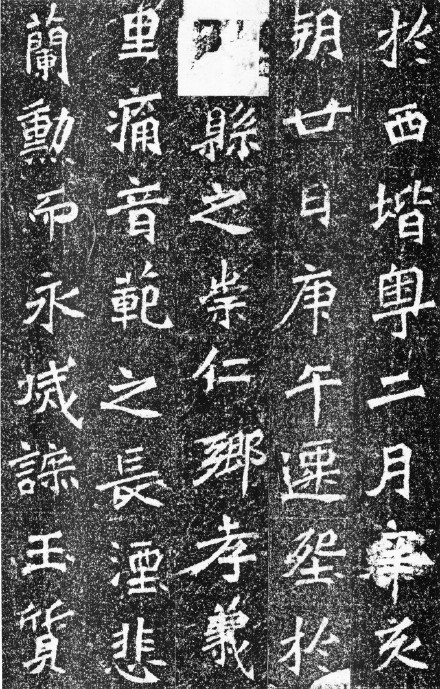 扵西堦粤二月辛亥
朔廿日庚午遷塟扵
縣之崇仁鄉孝義
里痛音範之長湮悲
蘭勳而永滅玉質